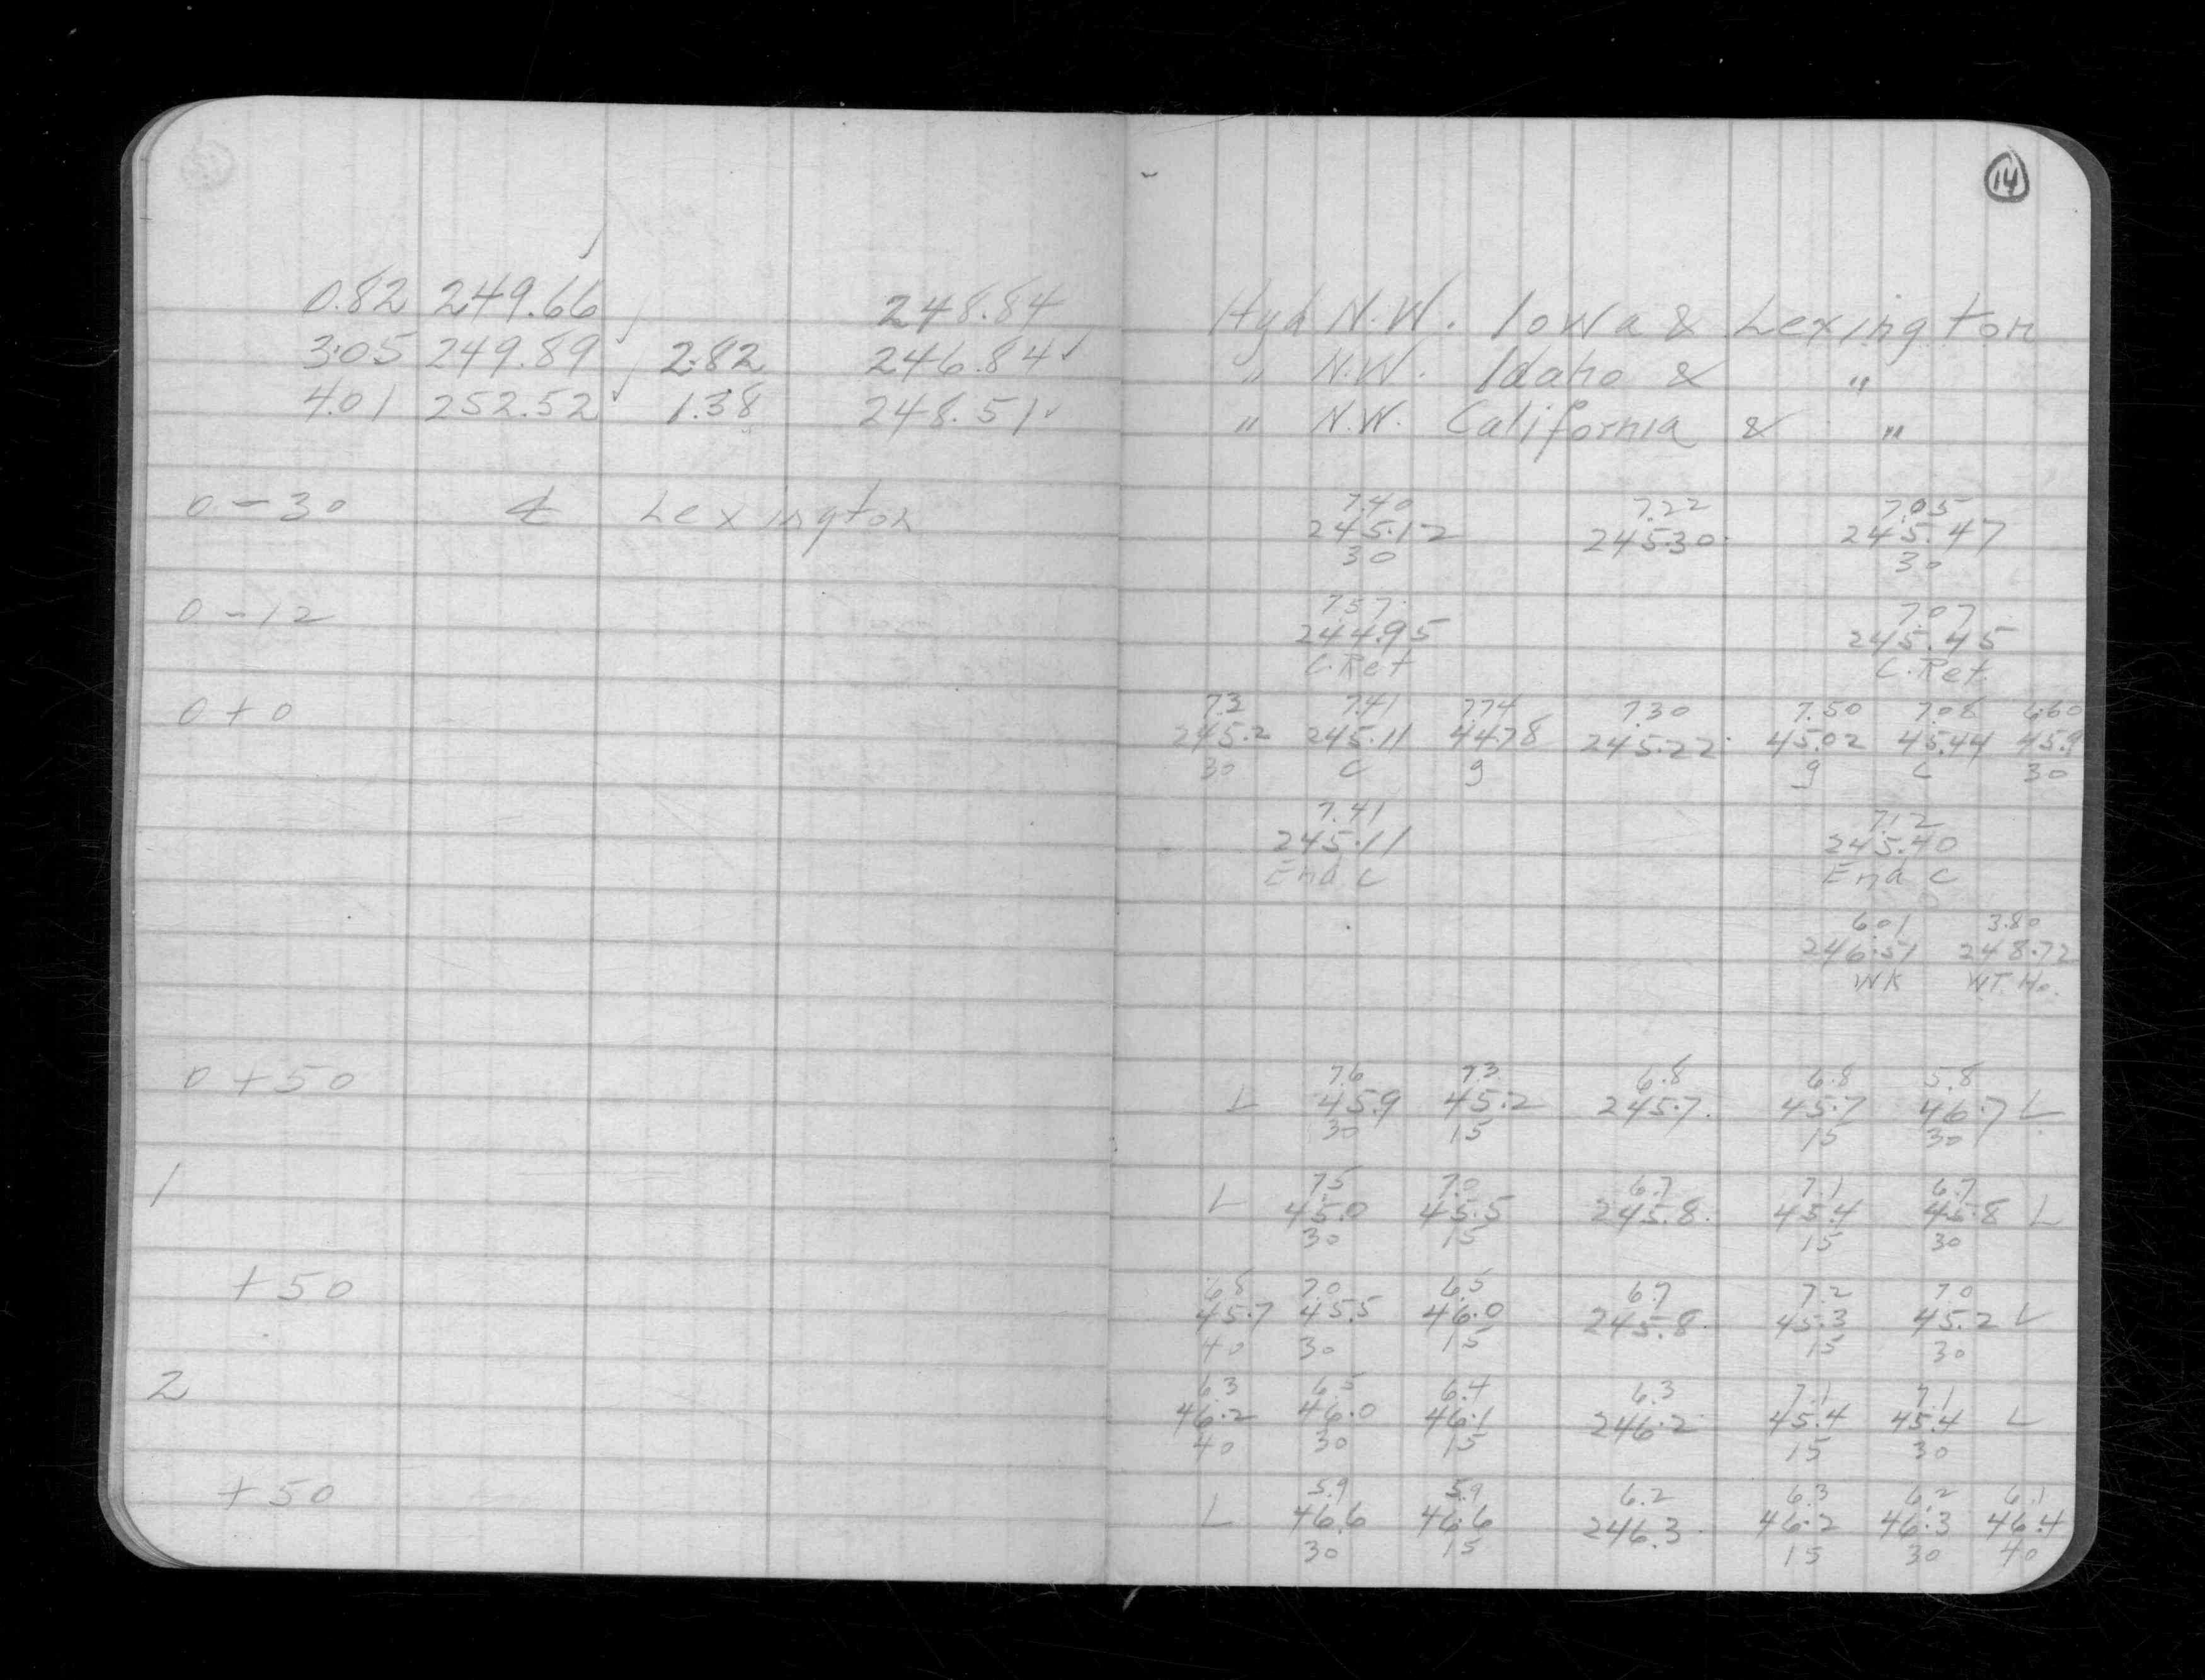 14
0.82 249.66 248.84 Hyd N.W. Iowa & Lexington
3.05 249.89 2.82 246.84 " N.W. Idaho & "
4.01 252.52 1.38 248.51 " N.W. California & "
7.40 7.22 7.05
0-30 ₵ Lexington 245.12 245.30 245.47
30 30
7.57 7.07
0-12 244.95 245.45
C.Ret C.Ret.
7.3 7.41 7.74 7.30 7.50 7.08 6.60
0+0 245.2 245.11 44.78 245.22 45.02 45.44 45.9
30 C g g C 30
7.41 7.12
245.11 245.40
End C End C
6.01 3.80
246.51 248.72
WK WT. Ho.
7.6 7.3 6.8 6.8 5.8
0+50 L 45.9 45.2 245.7 45.7 46.7 L
30 15 15 30
7.5 7.0 6.7 7.1 6.7
1 L 45.0 45.5 245.8 45.4 45.8 L
30 15 15 30
6.8 7.0 6.5 6.7 7.2 7.0
+50 45.7 45.5 46.0 245.8 45.3 45.2 L
40 30 15 15 30
6.3 6.5 6.4 6.3 7.1 7.1
2 46.2 46.0 46.1 246.2 45.4 45.4 L
40 30 15 15 30
5.9 5.9 6.2 6.3 6.2 6.1
+50 L 46.6 46.6 246.3 46.2 46.3 46.4
30 15 15 30 40